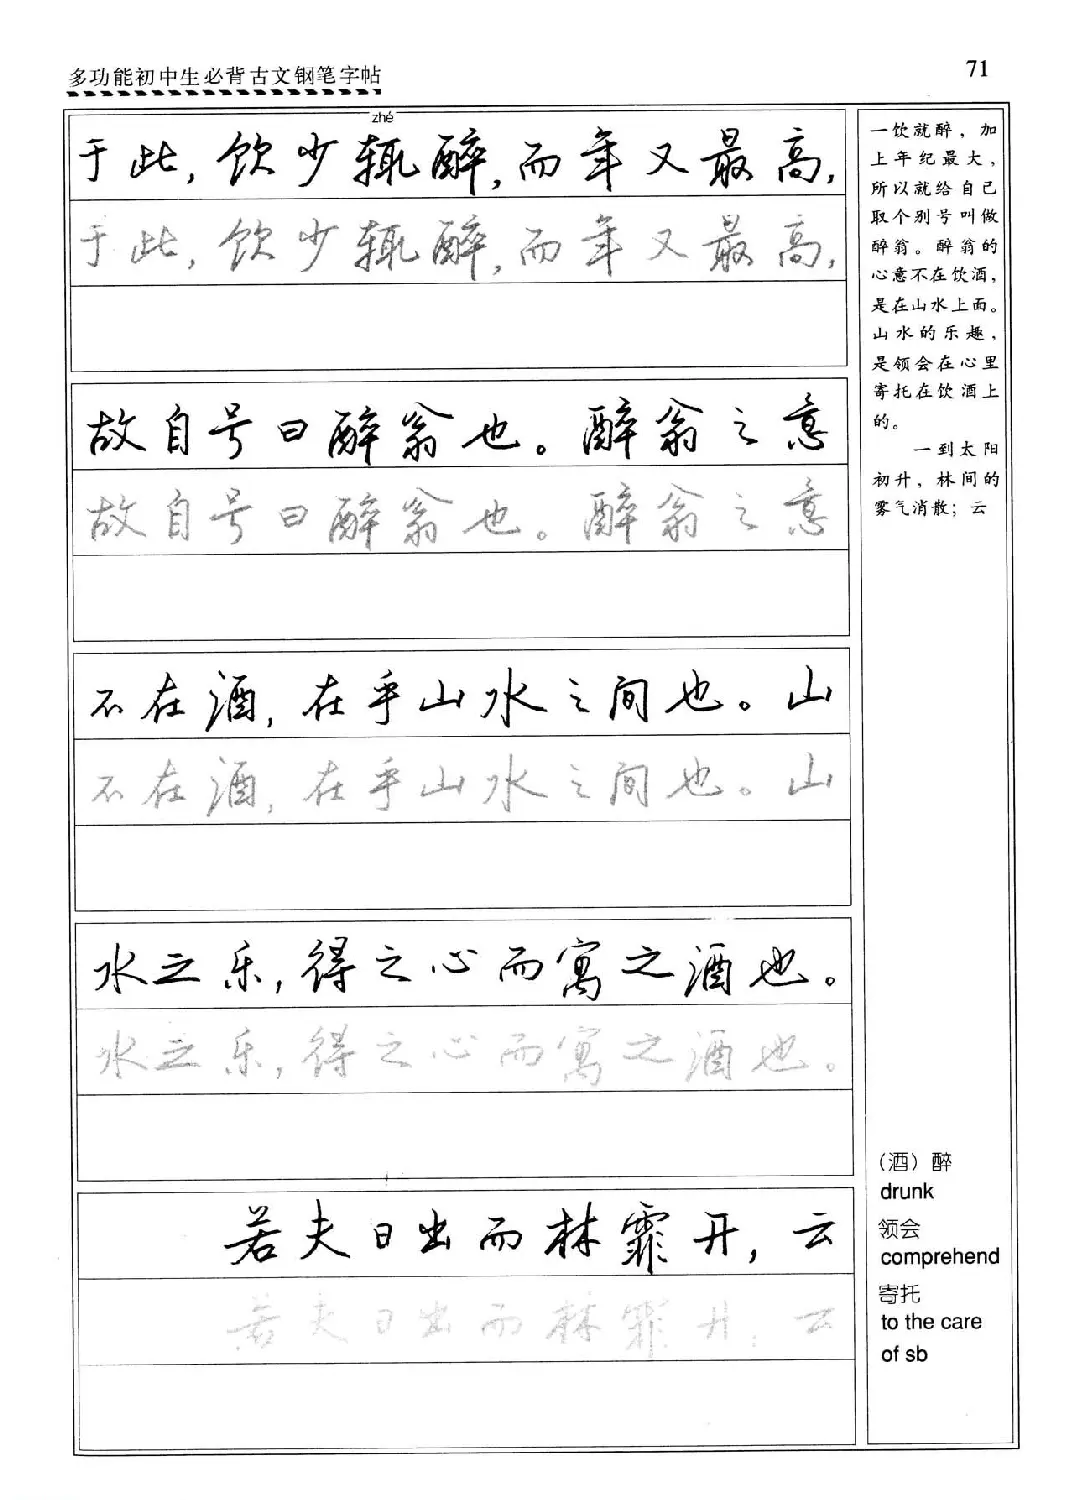 多功能初中生必背古文钢笔字帖
71
zhé
于此,饮少辄醉,而年又最高,
于此,饮少辄醉,而年又最高,
故自号曰醉翁也。醉翁之意
故自号曰醉翁也。醉翁之意
不在酒,在乎山水之间也。山
不在酒,在乎山水之间也。山
水之乐,得之心而寓之酒也。
水之乐,得之心而寓之酒也。
若夫日出而林霏开,云
若夫日出而林霏开,云
一饮就醉，加
上年纪最大，
所以就给自己
取个别号叫做
醉翁。醉翁的
心意不在饮酒，
是在山水上面。
山水的乐趣，
是领会在心里
寄托在饮酒上
的。
一到太阳
初升，林间的
雾气消散；云
（酒）醉
drunk
领会
comprehend
寄托
to the care
of sb